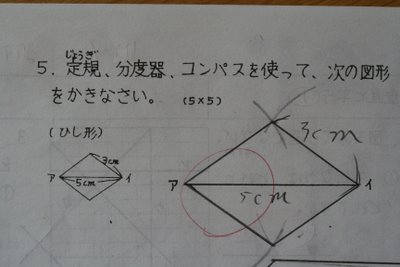 じょうぎ
5. 定規、分度器、コンパスを使って、次の図形
をかきなさい。 (5×5)
(ひし形)
3cm
ア 5cm イ
3cm
ア 5cm イ